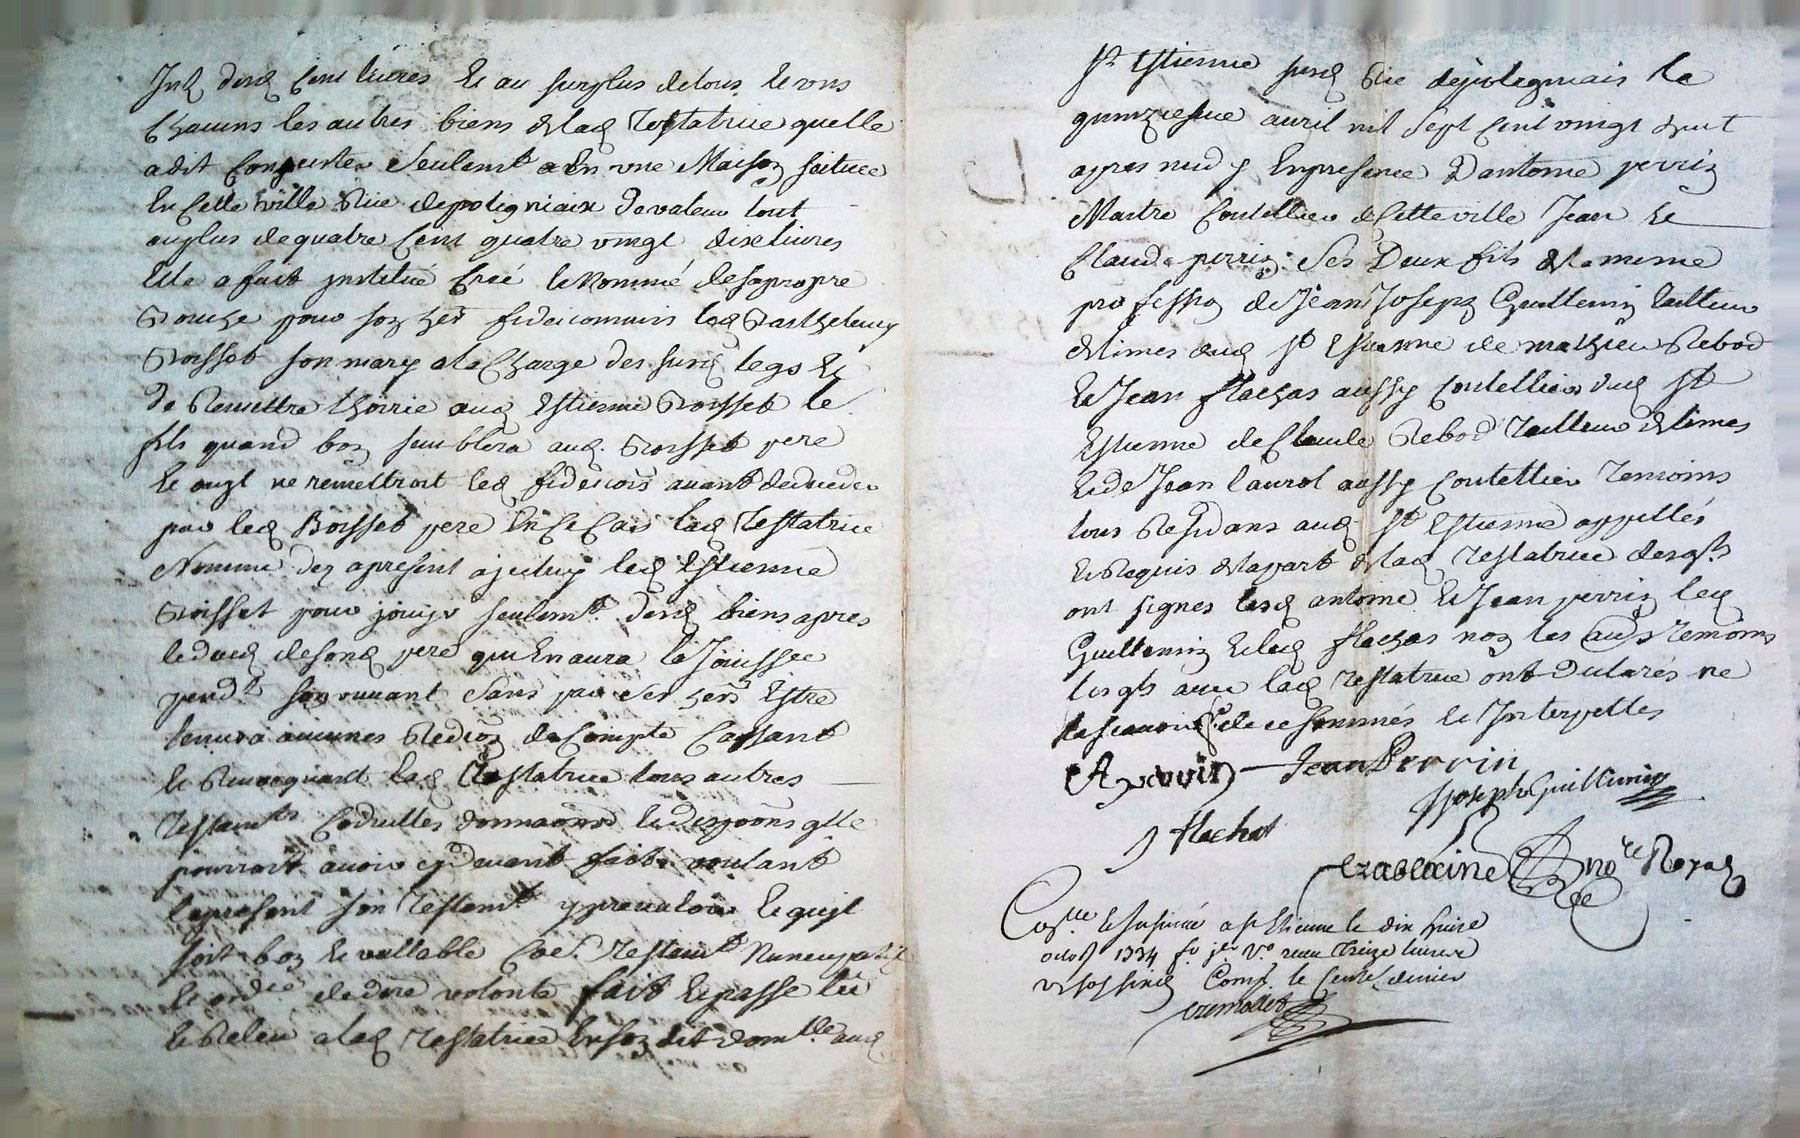 Jnd desd Cent livres Et au surplus de tous Et uns
Chacuns les autres biens de lad Testatrice quelle
a dit Consister Seulemt en une Maison scituee
En Cette ville Rüe depotigniaix de valeur tout
auplus de quatre Cent quatre vingt dix livres
Elle a fait institué Créé Et Nommé desa propre
Bouche pour son her fideicommis led Barthelemy
Boisset son mary ala Charge des susd legs Et
de Remettre Lhoirie aud Estienne Boisset le
fils quand bon semblera aud. Boisset pere
Et ou jl ne remettroit led fideicois avant de deceder
par led Boisset pere En Ce Cas lad Testatrice
Nomme dez apresent led Estienne
Boisset pour jouiyr seulemt desd biens apres
le deced desond pere qui En aura la Jouissce
pendt son vivant Sans par Ses hers Estre
tenus a aucunes Redion de Compte Cassant
Et Revocquant lad Testatrice tous autres
Testamts Codicilles donnaons Et disposons qlle
pourroit avoir cy devant faits voulant
le present son Testemt y prevaloir Et quyl
soit bon Et vallable Coe. Testamt Nuncupatif
Et ordre de dre volonté fait Et passé Lu
Et Releu a lad Testatrice En son dit domlle aud
St Estienne susd Rüe depotegniais le
quinziesme avril mil Sept Cent vingt huit
apres midy En presence Dantoine perrin
Maitre Coutellier de Cette ville Jean Et
Claude perrin Ses Deux fils de la meme
profession de Jean Joseph Guillemin tailleur
de limes aud St Estienne de mathieu Rebod
Et Jean flachas aussy Coutellier dud St
Estienne de Claude Rebod Tailleur de limes
Et de Jean laurol aussy Coutellier Temoins
tous Residans aud St Estienne appellés
Et Requis de la part de lad Testatrice desqls
ont signes lesd antoine Et Jean perrin led
Guillemin Et led flachas non les aus Temoins
lesqls avec lad Testatrice ont Declarés ne
la scavoir de ce sommés Et Interpelles
A perrin Jean Perrin
Joseph Guillemin
J flachat
nore Royal
Collé Et Insinué a St Etienne le dix huire
octob 1734 fo jer Vo recu Treize livres
Comp. le Centes denier